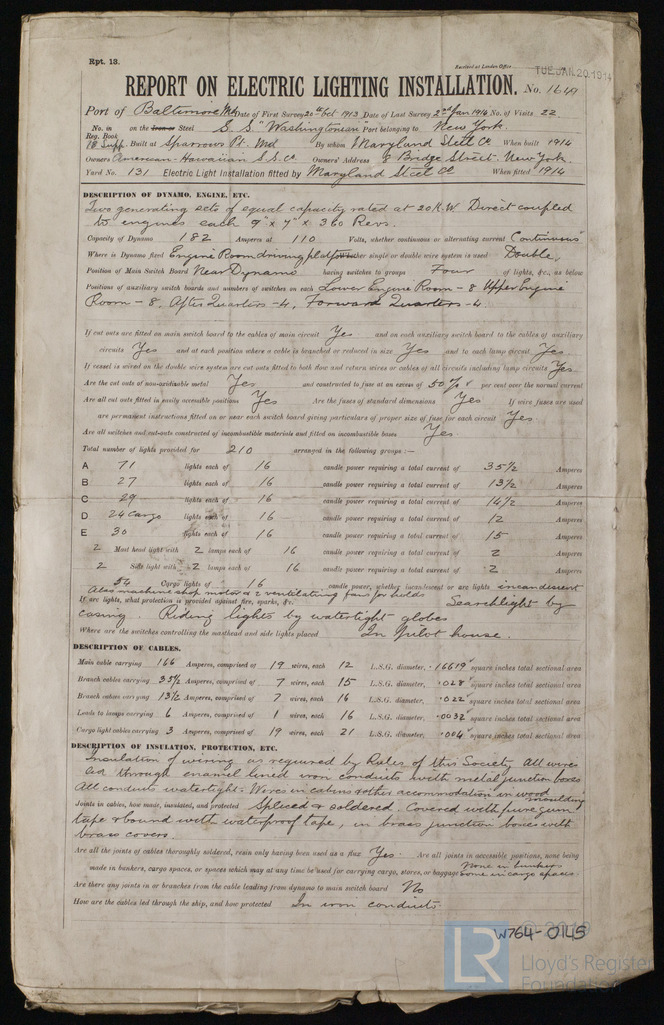 Rpt. 13.
Received at London Office TUE. JAN. 20. 1914
REPORT ON ELECTRIC LIGHTING INSTALLATION. No. 1649
Port of Baltimore Md Date of First Survey 20th Oct 1913 Date of Last Survey 2nd Jan 1914 No. of Visits 22
No. in on the Iron or Steel S.S. "Washingtonian" Port belonging to New York.
Reg. Book
18 Supp. Built at Sparrows Pt. Md By whom Maryland Steel Co When built 1914
Owners American-Hawaiian S.S. Co Owners' Address 8 Bridge Street. New York.
Yard No. 131 Electric Light Installation fitted by Maryland Steel Co When fitted 1914
DESCRIPTION OF DYNAMO, ENGINE, ETC.
Two generating sets of equal capacity rated at 20 K.W. Direct coupled
to engines each 9" x 7" x 360 Revs.
Capacity of Dynamo 182 Amperes at 110 Volts, whether continuous or alternating current Continuous
Where is Dynamo fixed Engine Room driving platform whether single or double wire system is used Double.
Position of Main Switch Board Near Dynamo having switches to groups Four of lights, &c., as below
Positions of auxiliary switch boards and numbers of switches on each Lower Engine Room - 8 Upper Engine
Room - 8, After Quarters - 4, Forward Quarters - 4.
If cut outs are fitted on main switch board to the cables of main circuit Yes and on each auxiliary switch board to the cables of auxiliary
circuits Yes and at each position where a cable is branched or reduced in size Yes and to each lamp circuit Yes.
If vessel is wired on the double wire system are cut outs fitted to both flow and return wires or cables of all circuits including lamp circuits Yes
Are the cut outs of non-oxidizable metal Yes and constructed to fuse at an excess of 50% per cent over the normal current
Are all cut outs fitted in easily accessible positions Yes Are the fuses of standard dimensions Yes If wire fuses are used
are permanent instructions fitted on or near each switch board giving particulars of proper size of fuse for each circuit Yes.
Are all switches and cut-outs constructed of incombustible materials and fitted on incombustible bases Yes.
Total number of lights provided for 210 arranged in the following groups :—
A 71 lights each of 16 candle power requiring a total current of 35½ Amperes
B 27 lights each of 16 candle power requiring a total current of 13½ Amperes
C 29 lights each of 16 candle power requiring a total current of 14½ Amperes
D 24 Cargo lights each of 16 candle power requiring a total current of 12 Amperes
E 30 lights each of 16 candle power requiring a total current of 15 Amperes
2 Mast head light with 2 lamps each of 16 candle power requiring a total current of 2 Amperes
2 Side light with 2 lamps each of 16 candle power requiring a total current of 2 Amperes
54 Cargo lights of 16 candle power, whether incandescent or arc lights incandescent
Also machine shop motor & 2 ventilating fans for holds
If arc lights, what protection is provided against fire, sparks, &c. Searchlight by
casing. Riding lights by watertight globes
Where are the switches controlling the masthead and side lights placed In pilot house.
DESCRIPTION OF CABLES.
Main cable carrying 166 Amperes, comprised of 19 wires, each 12 L.S.G. diameter, .16619 square inches total sectional area
Branch cables carrying 35½ Amperes, comprised of 7 wires, each 15 L.S.G. diameter, .028 square inches total sectional area
Branch cables carrying 13½ Amperes, comprised of 7 wires, each 16 L.S.G. diameter, .022 square inches total sectional area
Leads to lamps carrying 6 Amperes, comprised of 1 wires, each 16 L.S.G. diameter, .0032 square inches total sectional area
Cargo light cables carrying 3 Amperes, comprised of 19 wires, each 21 L.S.G. diameter, .004 square inches total sectional area
DESCRIPTION OF INSULATION, PROTECTION, ETC.
Insulation of wiring as required by Rules of this Society All wires
led through enamel lined iron conduits with metal junction boxes
All conduits watertight. Wires in cabins & other accommodation in wood moulding
Joints in cables, how made, insulated, and protected Spliced & soldered. Covered with pure gum
tape & bound with waterproof tape, in brass junction boxes with
brass covers.
Are all the joints of cables thoroughly soldered, resin only having been used as a flux Yes. Are all joints in accessible positions, none being
made in bunkers, cargo spaces, or spaces which may at any time be used for carrying cargo, stores, or baggage None in bunkers some in cargo spaces.
Are there any joints in or branches from the cable leading from dynamo to main switch board No
How are the cables led through the ship, and how protected In iron conduits.
W764-0145
LR
Lloyd's Register
Foundation